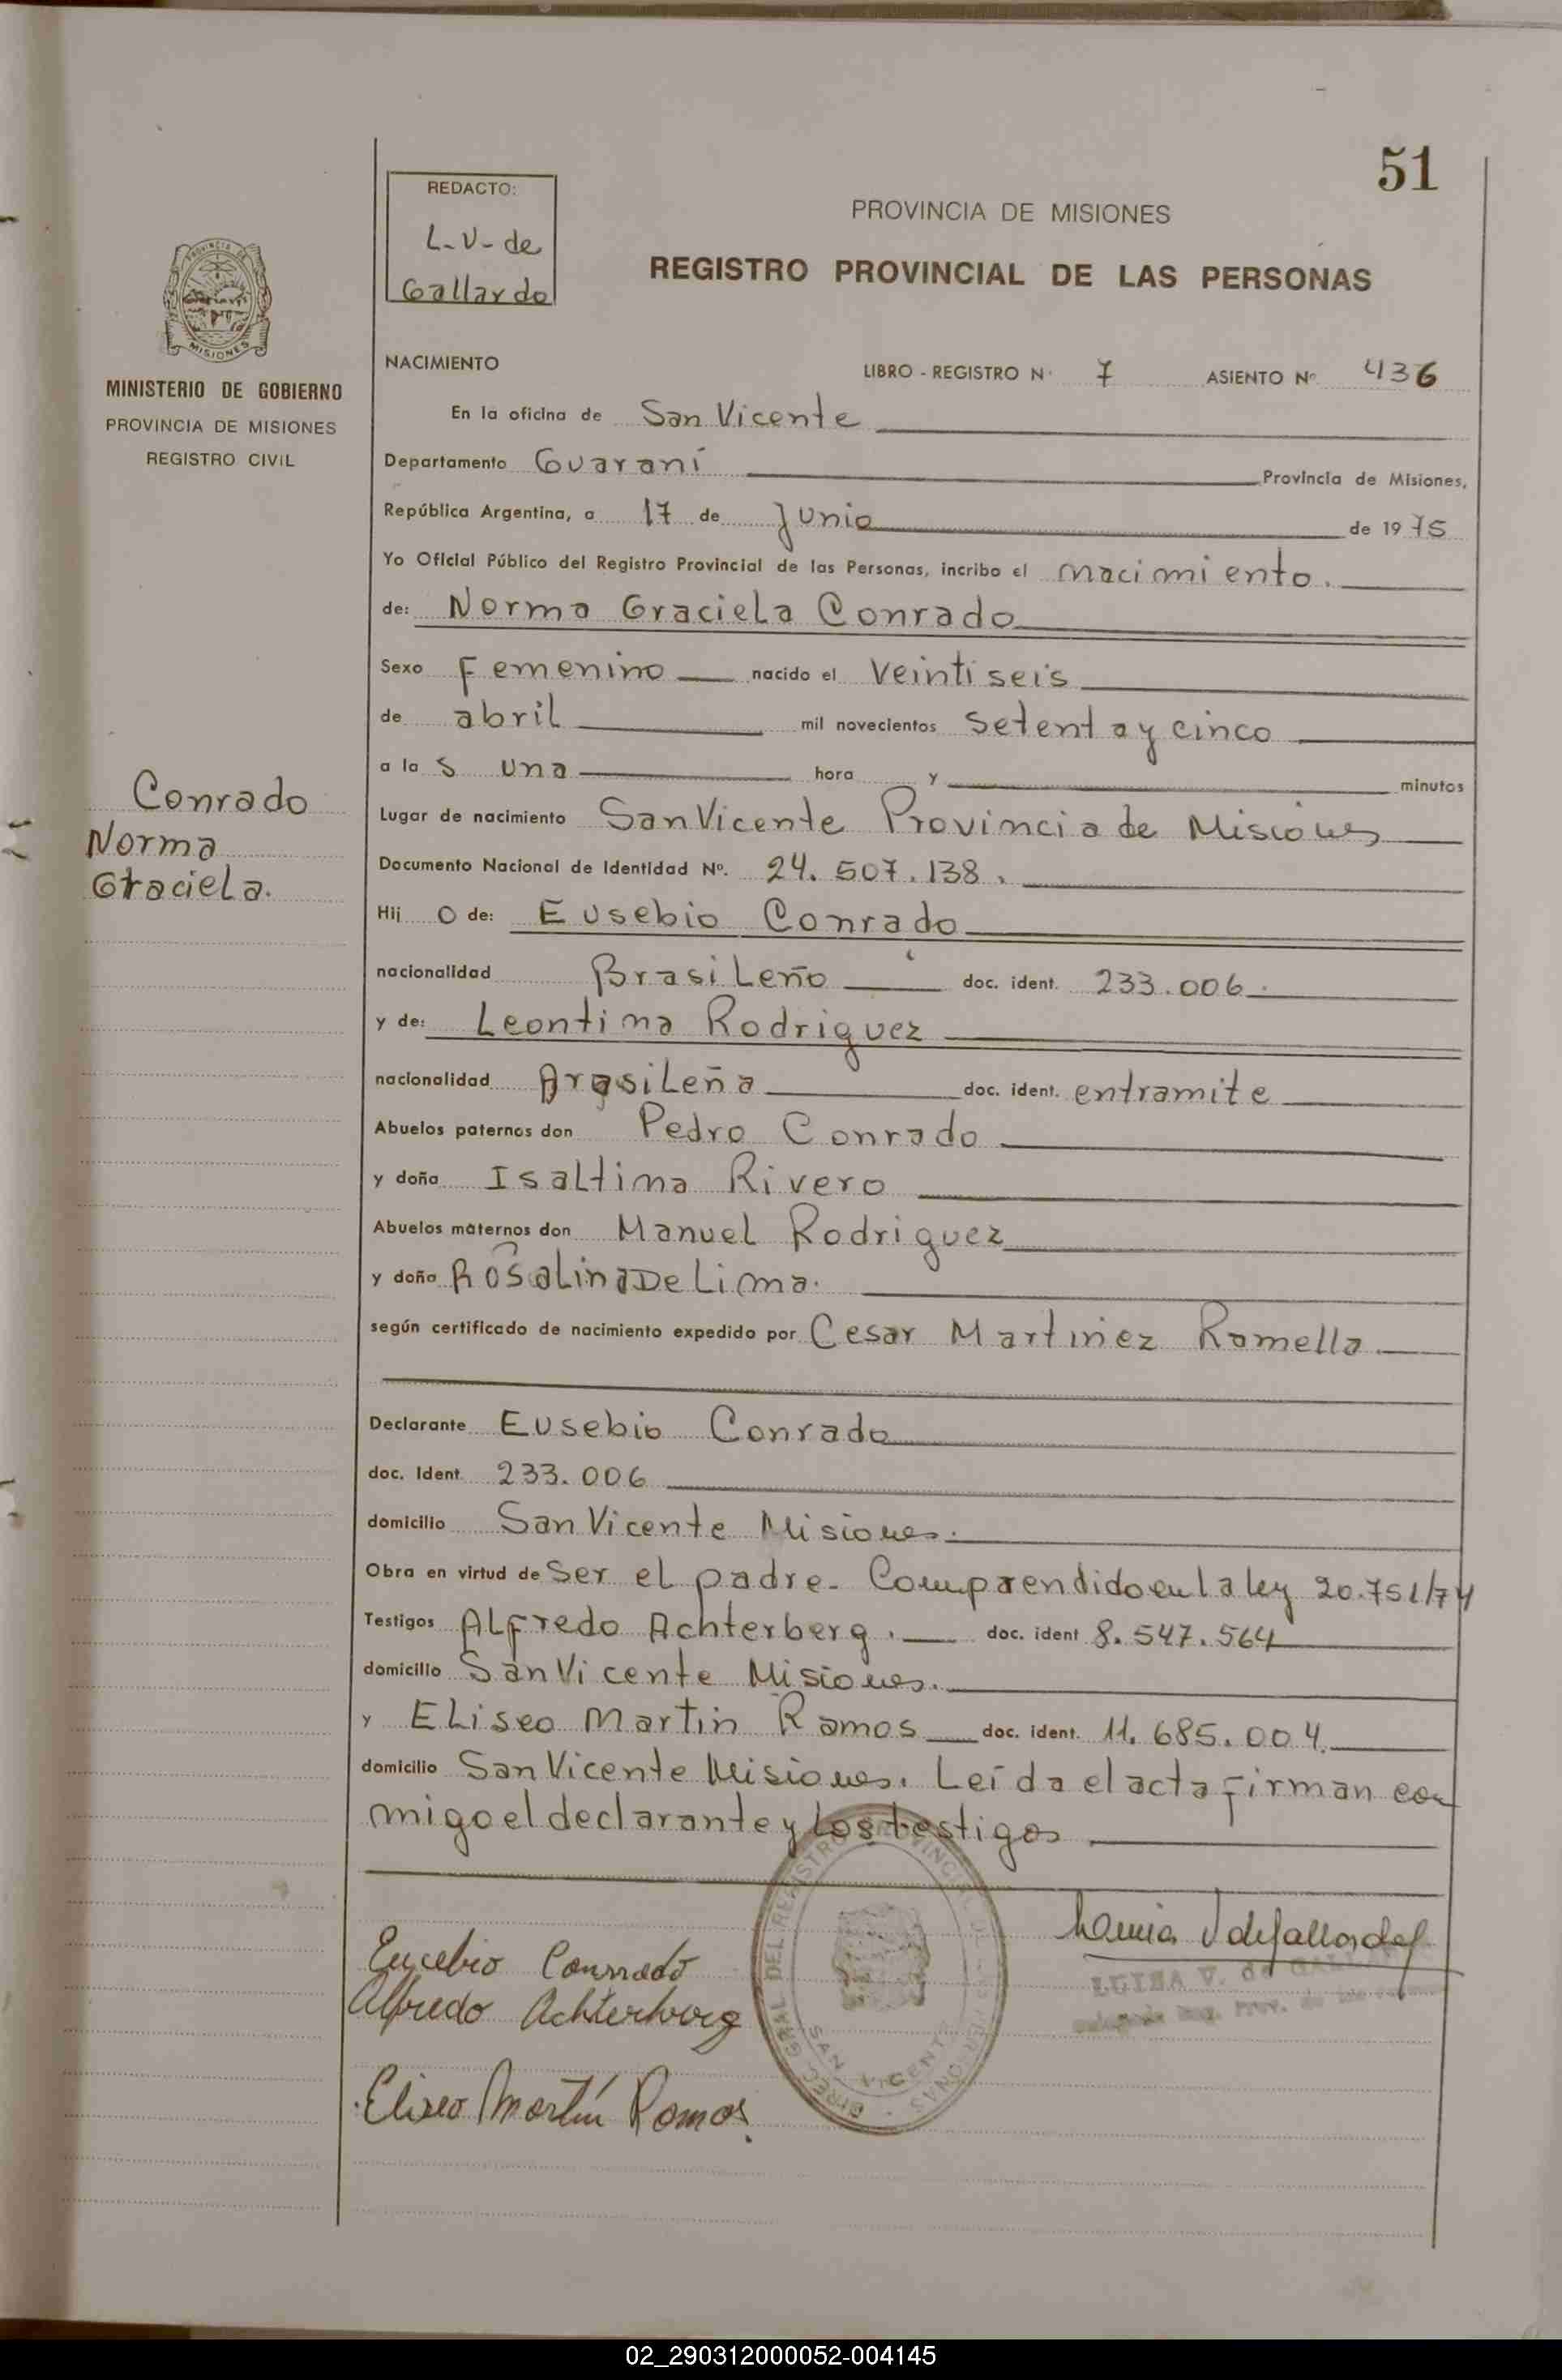 51
REDACTO:
L-V- de
Gallardo
PROVINCIA DE MISIONES
REGISTRO PROVINCIAL DE LAS PERSONAS
PROVINCIA DE
MISIONES
MINISTERIO DE GOBIERNO
PROVINCIA DE MISIONES
REGISTRO CIVIL
NACIMIENTO LIBRO - REGISTRO N· 7 ASIENTO Nº 436
En la oficina de San Vicente
Departamento Guaraní Provincia de Misiones,
República Argentina, a 17 de Junio de 1975
Yo Oficial Público del Registro Provincial de las Personas, incribo el nacimiento.
de: Norma Graciela Conrado
Sexo Femenino nacido el Veintiseis
de abril mil novecientos setenta y cinco
a la s una hora y minutos
Conrado
Norma
Graciela.
Lugar de nacimiento San Vicente Provincia de Misiones
Documento Nacional de Identidad Nº. 24.507.138.
Hij o de: Eusebio Conrado
nacionalidad Brasileño doc. ident. 233.006.
y de: Leontina Rodriguez
nacionalidad Brasileña doc. ident. entramite
Abuelos paternos don Pedro Conrado
y doña Isaltina Rivero
Abuelos maternos don Manuel Rodriguez
y doña Rosalina De Lima.
según certificado de nacimiento expedido por Cesar Martinez Ramella
Declarante Eusebio Conrado
doc. Ident. 233.006
domicilio San Vicente Misiones.
Obra en virtud de Ser el padre- Comprendido en la ley 20.751/74
Testigos Alfredo Achterberg. doc. ident 8.547.564
domicilio San Vicente Misiones.
y Eliseo Martin Ramos doc. ident. 11.685.004.
domicilio San Vicente Misiones. Leída el acta firman con
migo el declarante y los testigos
Eucebio Conrrado
Alfredo Achterberg
Eliseo Martín Ramos
LUISA V. de
DIREC. GRAL DEL REGISTRO PROVINCIAL DE LAS PERSONAS
SAN VICENTE
02_290312000052-004145